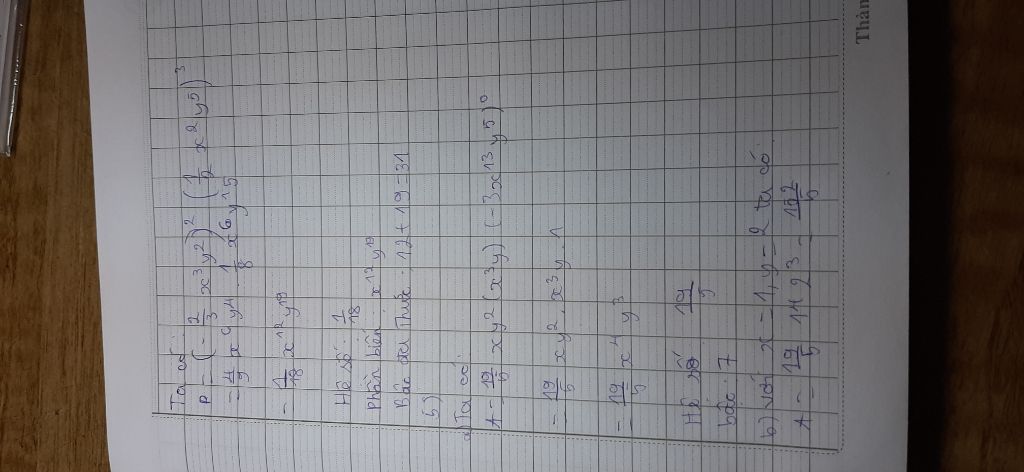 Ta có
P = (- 2/3 x³y²)² (1/2 x²y⁵)³
= 4/9 x⁶y⁴ . 1/8 x⁶y¹⁵
= 1/18 x¹²y¹⁹
Hệ số : 1/18
Phần biến : x¹²y¹⁹
Bậc đa thức : 12 + 19 = 31
b)
a) Ta có
A = 19/5 xy² (x³y) (-3x¹³y⁵)⁰
= 19/5 xy² . x³y . 1
= 19/5 x⁴y³
Hệ số 19/5
bậc : 7
b) với x = 1, y = 2 ta có
A = 19/5 1⁴ 2³ = 152/5